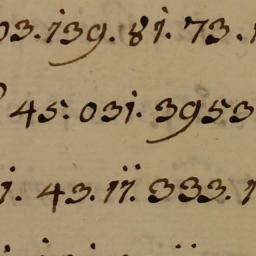 03.139.81.73.
45.031.3953
1.43.11.333.1